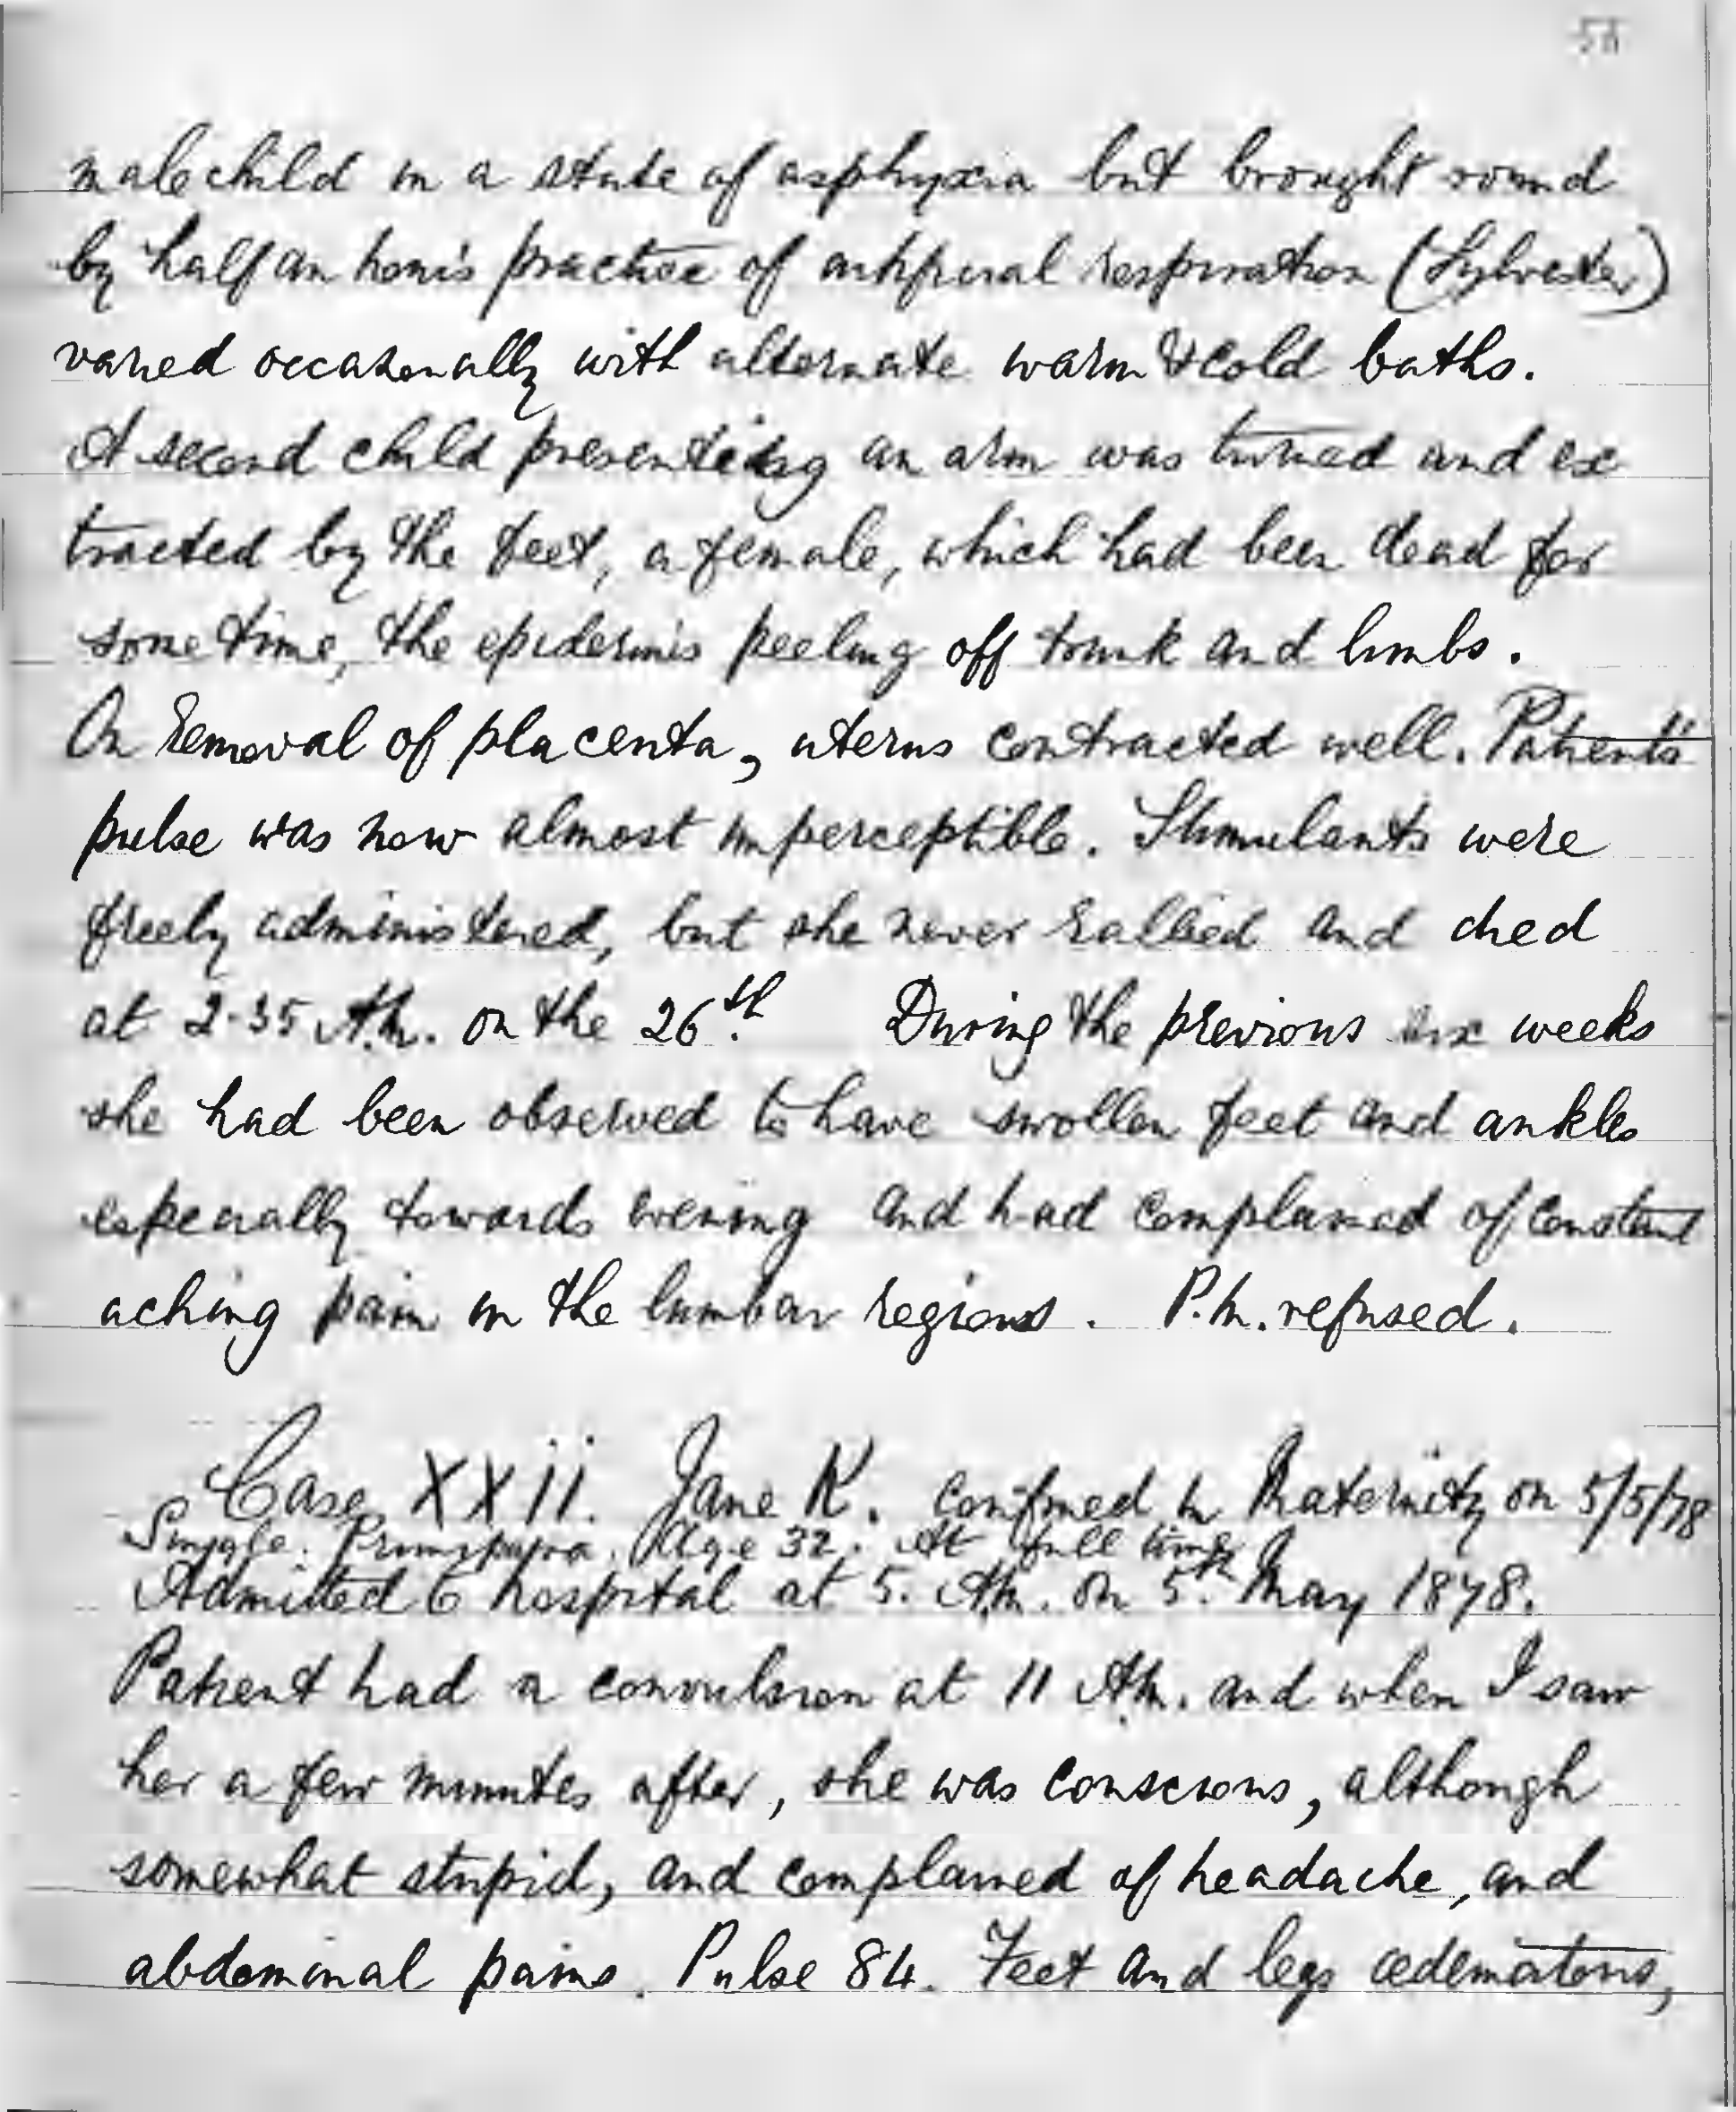 male child in a state of asphyxia but brought round
by half an hour's practice of artificial respiration (Sylvester)
varied occasionally with alternate warm & cold baths.
A second child presenting an arm was turned and ex
tracted by the feet, a female, which had been dead for
some time, the epidermis peeling off trunk and limbs.
On removal of placenta, uterus contracted well. Patient's
pulse was now almost imperceptible. Stimulants were
freely administered, but she never rallied and died
at 2.35 A.M. on the 26th. During the previous six weeks
she had been observed to have swollen feet and ankles
especially towards evening and had complained of constant
aching pain in the lumbar regions. P.M. refused.
Case XXii. Jane K. confined in Maternity on 5/5/78
Single. Primipara. Age 32. At full time
Admitted to hospital at 5. A.M. on 5th May 1878.
Patient had a convulsion at 11 A.M. and when I saw
her a few minutes after, she was conscious, although
somewhat stupid, and complained of headache, and
abdominal pains. Pulse 84. Feet and legs œdematous,